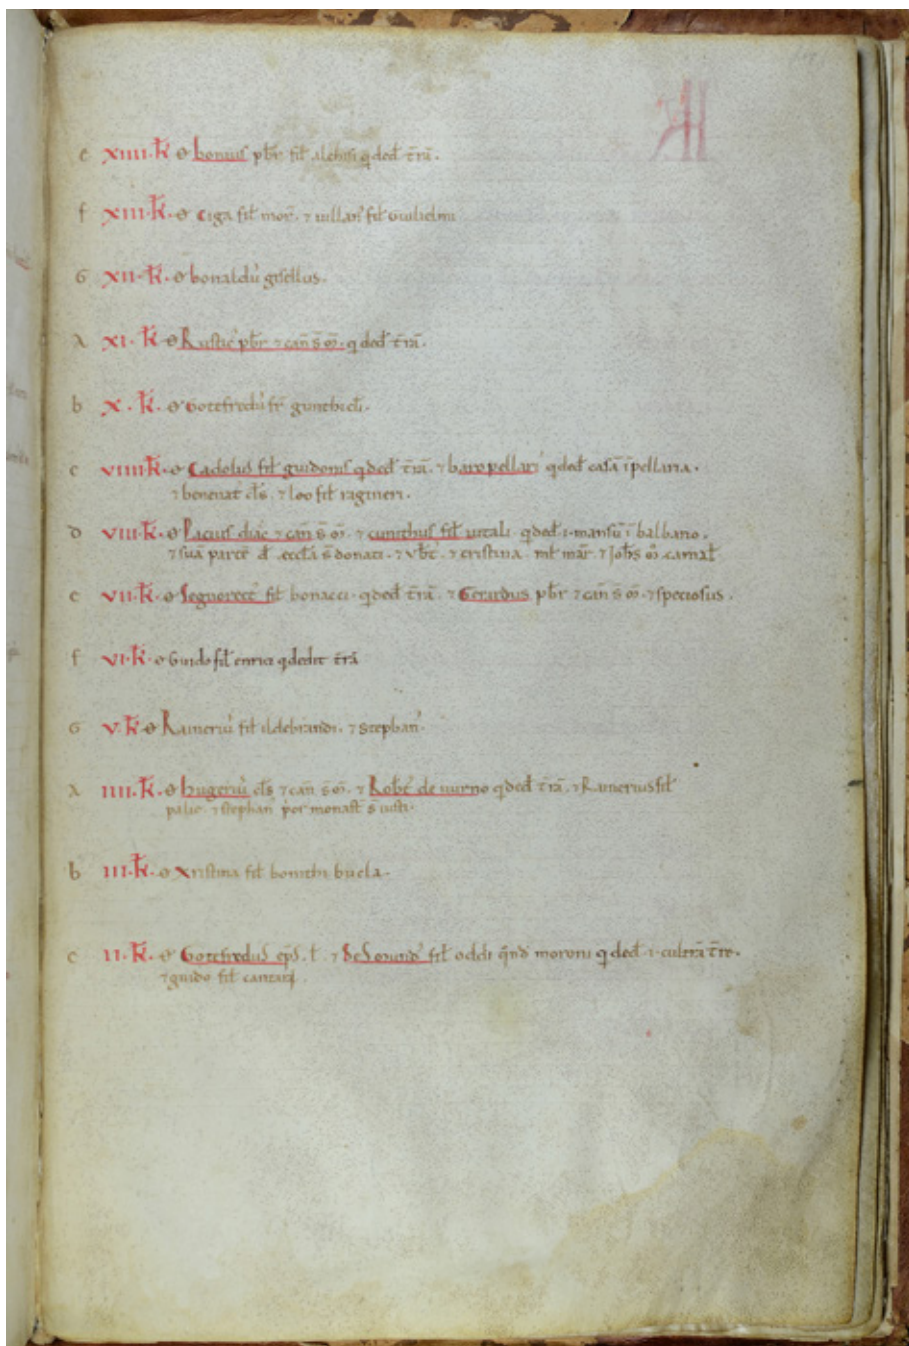 e XIIII·k̄ o bonius pbr̄ fil̄ ildiusi q̄ ded̄ t̄rā.
f XIII·k̄· o Ciga fil̄ mor̄. ⁊ uillan᾽ fil̄ Guilielmi
G XII·k̄· o bonaldu᾽ gisellus.
A XI·k̄· o Rustic᾽ pbr̄ ⁊ can̄ s̄ m̄. q ded̄ t̄rā.
b X·k̄· o Gotefredu᾽ fr̄
c VIIII·k̄· o Cadolus fil̄ guidonis q̄ ded̄ t̄rā. ⁊ baro pellari᾽ q̄ ded̄ casā ī pellaria.
⁊ benenat᾽ cl̄s. ⁊ leo fil̄ ragineri.
D VIII·k̄· o Pacius diac̄ ⁊ can̄ s̄ m̄. ⁊ cunithus fil̄ uitali q̄ ded̄ ·i·mansū ī balbano.
⁊ suā partē d̄ eccl̄a s̄ donati. ⁊ vb̄t᾽. ⁊ cristina. ml̄ mār. ⁊ Joh̄s m̄ camal̄
e VII·k̄· o Segnorect᾽ fil̄ bonacci. q̄ ded̄ t̄rā. ⁊ Gerardus pbr̄ ⁊ can̄ s̄ m̄. ⁊ speciosus.
f VI·k̄· o Guido fil̄ enrici q̄ dedit t̄rā
G V·k̄ o Raineriu᾽ fil̄ ildebrandi. ⁊ Stephan᾽.
A IIII·k̄· o hugeriu᾽ cl̄s ⁊ can̄ s̄ m̄. ⁊ Rob̄t᾽ de uurno q̄ ded̄ t̄rā. ⁊ Rainerius fil̄
palic. ⁊ stephan᾽ p᾽or monast̄ s̄ iusti.
b III·k̄· o Xristina fil̄ bonithi bucla.
c II·k̄· o Gotefredus ep̄s. l̄. ⁊ fil̄ oddi q̄nd̄ moroni q ded̄ ·i·cultrā t̄re.
⁊ guido fil̄